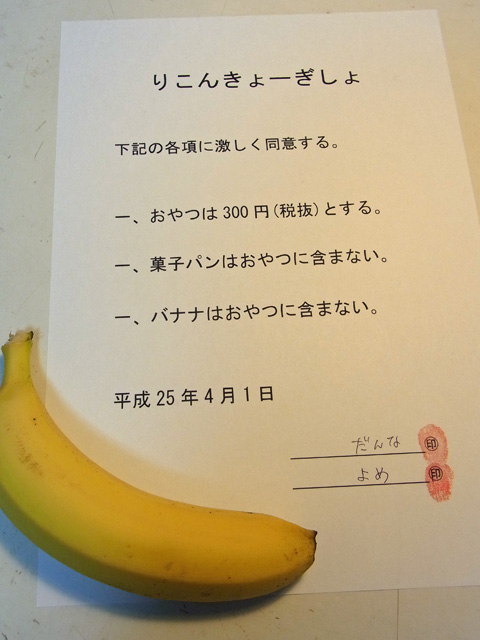 りこんきょーぎしょ
下記の各項に激しく同意する。
一、おやつは300円(税抜)とする。
一、菓子パンはおやつに含まない。
一、バナナはおやつに含まない。
平成25年4月1日
だんな ㊞
よめ ㊞